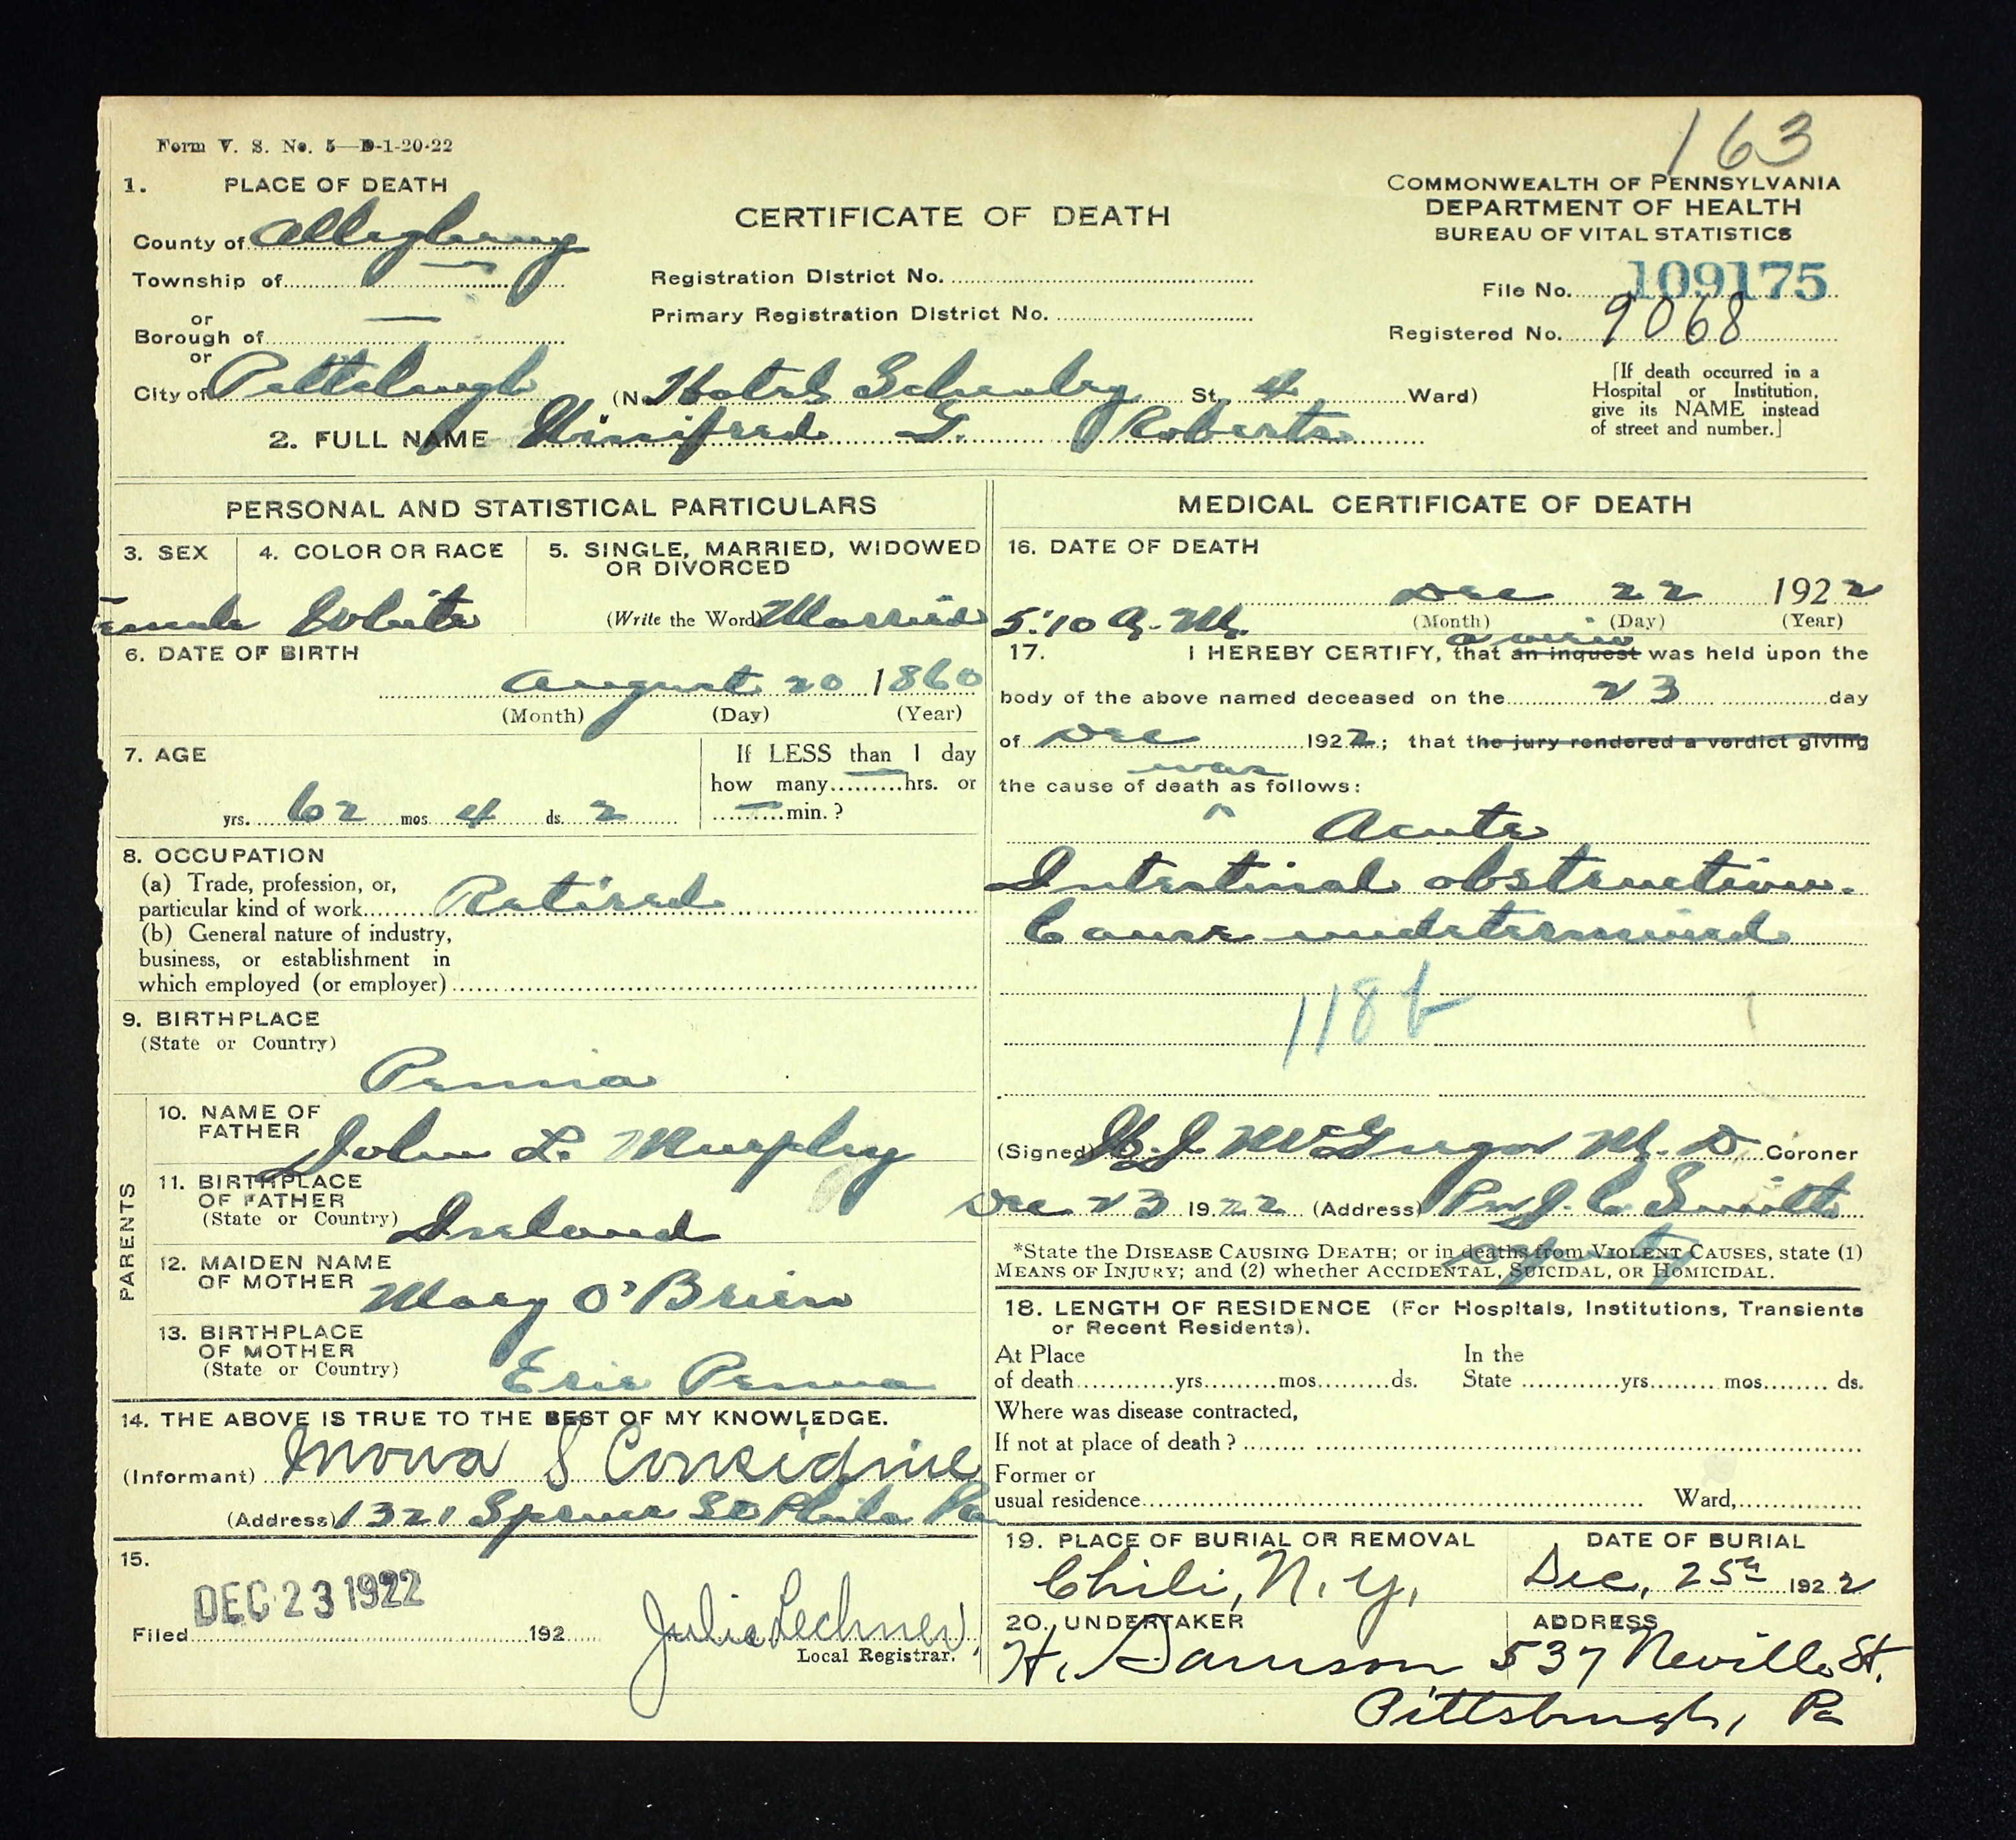 163
Form V. S. No. 5—D-1-20-22
COMMONWEALTH OF PENNSYLVANIA
DEPARTMENT OF HEALTH
BUREAU OF VITAL STATISTICS
CERTIFICATE OF DEATH
1. PLACE OF DEATH
County of Allegheny
Township of —
or
Borough of —
or
City of Pittsburgh
Registration District No.
Primary Registration District No.
File No. 109175
Registered No. 9068
(No. Hotel Schenley St. 4 Ward)
[If death occurred in a
Hospital or Institution,
give its NAME instead
of street and number.]
2. FULL NAME Winifred G. Roberts
PERSONAL AND STATISTICAL PARTICULARS
3. SEX
Female
4. COLOR OR RACE
White
5. SINGLE, MARRIED, WIDOWED
OR DIVORCED
(Write the Word) Married
6. DATE OF BIRTH
August 20 1860
(Month) (Day) (Year)
7. AGE
yrs. 62 mos 4 ds. 2
If LESS than 1 day
how many — hrs. or
— min. ?
8. OCCUPATION
(a) Trade, profession, or,
particular kind of work Retired
(b) General nature of industry,
business, or establishment in
which employed (or employer)
9. BIRTHPLACE
(State or Country)
Penna
PARENTS
10. NAME OF
FATHER John L. Murphy
11. BIRTHPLACE
OF FATHER
(State or Country) Ireland
12. MAIDEN NAME
OF MOTHER Mary O'Brien
13. BIRTHPLACE
OF MOTHER
(State or Country) Erie Penna
14. THE ABOVE IS TRUE TO THE BEST OF MY KNOWLEDGE.
(Informant) Mona S Considine
(Address) 1321 Spruce St Phila Pa
15.
DEC 23 1922
Filed 192
Julia Lechner
Local Registrar.
MEDICAL CERTIFICATE OF DEATH
16. DATE OF DEATH
Dec 22 1922
5:10 A.M. (Month) (Day) (Year)
a view
17. I HEREBY CERTIFY, that an inquest was held upon the
body of the above named deceased on the 23 day
of Dec 1922; that the jury rendered a verdict giving
was
the cause of death as follows:
Acute
Intestinal obstruction.
Cause undetermined
118b
(Signed) W.J. McGregor M.D. Coroner
Dec 23 1922 (Address) Per J. C. Smith
Deputy
*State the DISEASE CAUSING DEATH; or in deaths from VIOLENT CAUSES, state (1)
MEANS OF INJURY; and (2) whether ACCIDENTAL, SUICIDAL, OR HOMICIDAL.
18. LENGTH OF RESIDENCE (For Hospitals, Institutions, Transients
or Recent Residents).
At Place
of death yrs. mos. ds.
In the
State yrs. mos. ds.
Where was disease contracted,
If not at place of death ?
Former or
usual residence Ward,
19. PLACE OF BURIAL OR REMOVAL
Chili, N. Y,
DATE OF BURIAL
Dec, 25th 1922
20. UNDERTAKER
H. Samson
ADDRESS
537 Neville St.
Pittsburgh, Pa